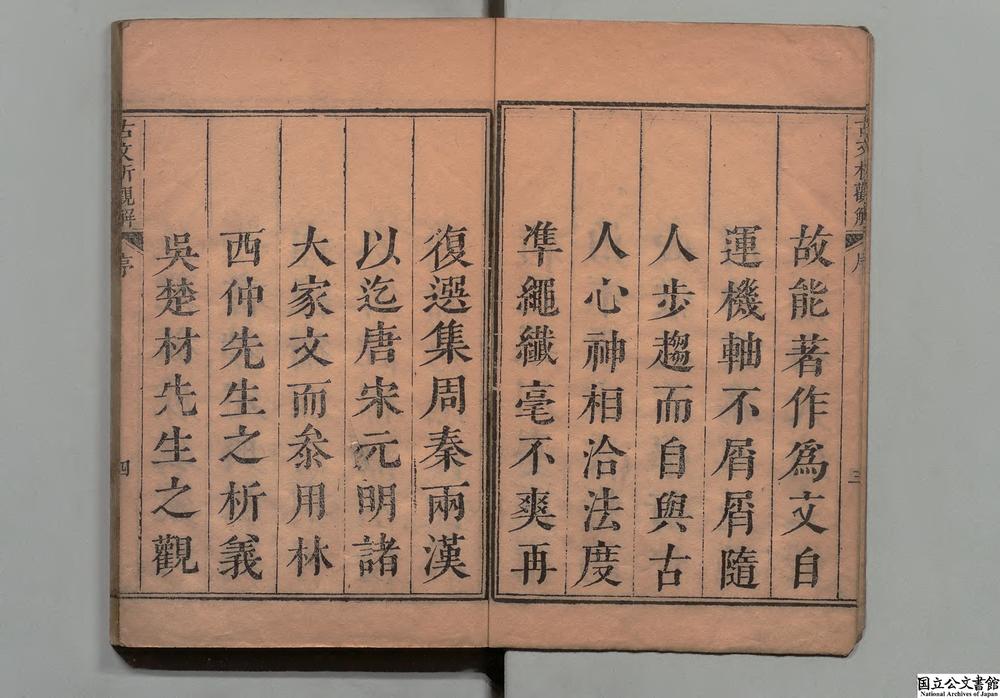 古文析觀解
序
三
故能著作爲文自
運機軸不屑屑隨
人步趨而自與古
人心神相洽法度
凖繩纖毫不爽再
復選集周秦兩漢
以迄唐宋元明諸
大家文而叅用林
西仲先生之析義
吳楚材先生之觀
古文析觀解
序
四
国立公文書館
National Archives of Japan